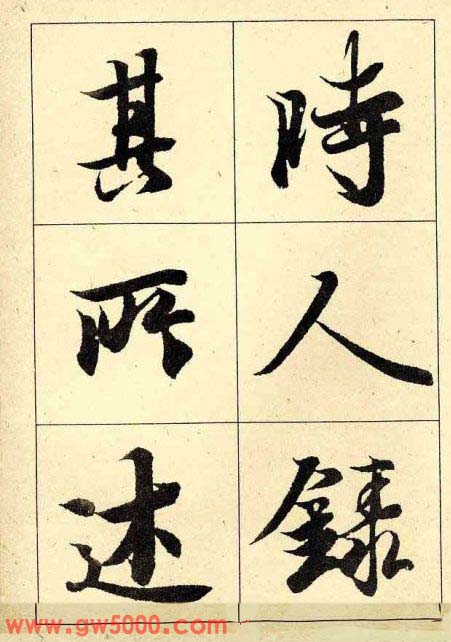 時人錄
其所述
www.gw5000.com